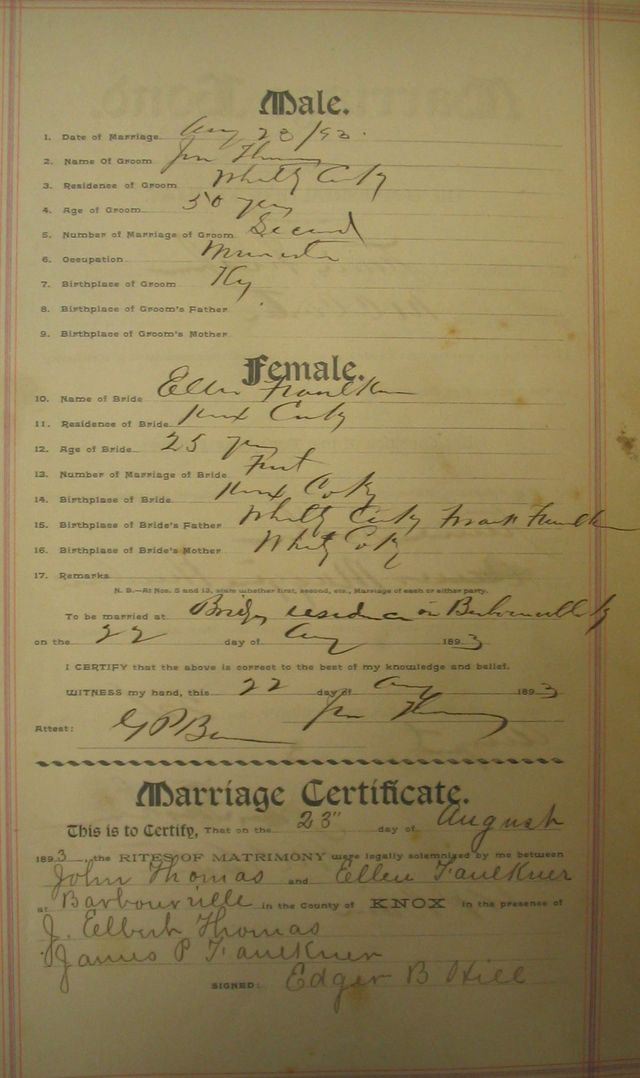 Male.
1. Date of Marriage Aug 23/93.
2. Name Of Groom Jno Thomas
3. Residence of Groom Whitly Co Ky
4. Age of Groom 50 yrs
5. Number of Marriage of Groom Second
6. Occupation Minister
7. Birthplace of Groom Ky
8. Birthplace of Groom's Father
9. Birthplace of Groom's Mother
Female.
10. Name of Bride Ellen Faulkner
11. Residence of Bride Knox Co Ky
12. Age of Bride 25 yrs
13. Number of Marriage of Bride First
14. Birthplace of Bride Knox Co Ky
15. Birthplace of Bride's Father Whitly Co Ky Faulkner
16. Birthplace of Bride's Mother Whitly Co Ky
17. Remarks
N. B.—At Nos. 5 and 13, state whether first, second, etc., Marriage of each or either party.
To be married at Brides residence in Barbourville Ky
on the 22 day of Aug 1893
I CERTIFY that the above is correct to the best of my knowledge and belief.
WITNESS my hand, this 22 day of Aug 1893
Jno Thomas
Attest: G P
Marriage Certificate.
This is to Certify, That on the 23" day of August
1893, the RITES OF MATRIMONY were legally solemnized by me between
John Thomas and Ellen Faulkner
at Barbourville in the County of KNOX in the presence of
J. Elbert Thomas
James P Faulkner
SIGNED: Edgar B Hill